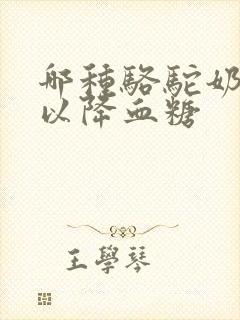 哪種駱駝奶
以降血糖
王學琴